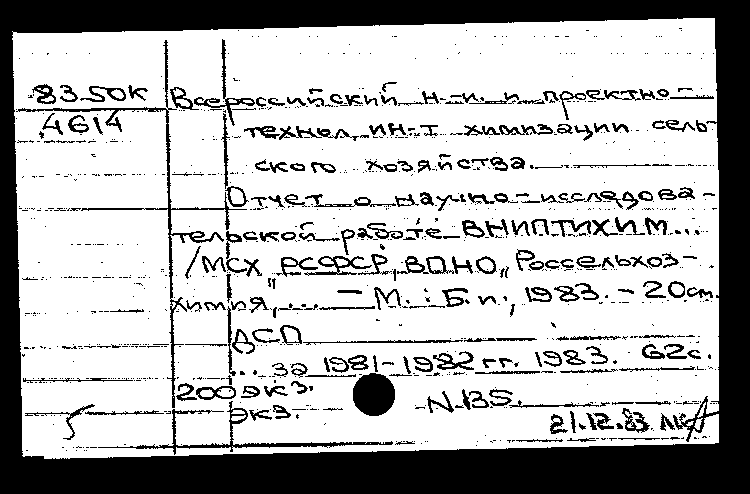 83.50К Всероссийский н.-и. и проектно-
4614 технол. ин-т химизации сель-
ского хозяйства.
Отчет о научно-исследова-
тельской работе ВНИПТИХИМ...
/МСХ РСФСР, ВПНО „Россельхоз-
химия", ... – М.: Б.и., 1983. – 20см.
ДСП
... за 1981-1982 гг. 1983. 62с.
200 экз.
экз. N.BS.
21.12.83